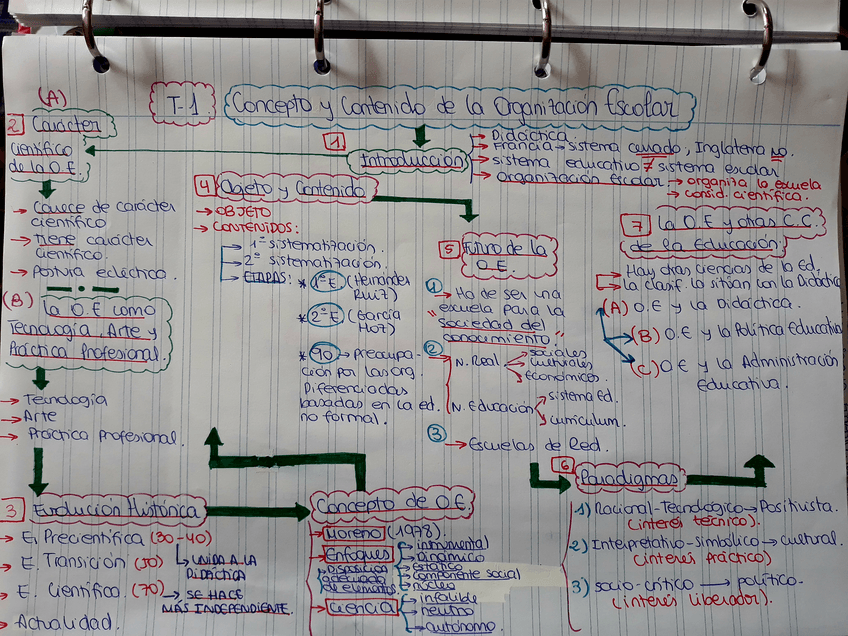 T-1 Concepto y Contenido de la Organización Escolar
1 Introducción
→ Didáctica.
→ Francia → sistema cerrado, Inglaterra no.
→ sistema educativo ≠ sistema escolar
→ Organización Escolar → organiza la escuela
→ consid. científica.
(A)
2 Carácter
científico
de la O.E.
→ Carece de carácter
científico
→ Tiene carácter
científico.
→ Postura ecléctica.
(B) la O.E como
Tecnología, Arte y
Práctica Profesional.
→ Tecnología
→ Arte
→ Práctica Profesional.
3 Evolución Histórica
→ E. Precientífica (30-40)
↳ UNIDA A LA
DIDÁCTICA
→ E. Transición (50)
→ E. Científica. (70) → SE HACE
MÁS INDEPENDIENTE.
→ Actualidad.
Concepto de O.E.
→ Moreno (1978).
→ Enfoques
instrumental
Dinámico
estático
componente social
núcleo
Disposición
adecuada
de elementos.
→ Ciencia
infalible
neutro
autónomo
4 Objeto y Contenido
→ OBJETO
→ CONTENIDOS:
→ 1ª sistematización.
→ 2ª sistematización.
→ ETAPAS: * 1ª E (Hernández
Ruiz)
* 2ª E (García
Hoz)
* 90 → Preocupa-
ción por las org.
Diferenciadas
basadas en la ed.
no formal.
5 Futuro de la
O.E.
1 → Ha de ser una
"escuela para la
sociedad del
conocimiento."
2 N. Real
sociales
culturales
económicos.
N. Educación
sistema Ed.
curriculum.
3 → Escuelas de Red.
6 Paradigmas
1) Racional-Tecnológico → Positivista.
(interés técnico).
2) Interpretativo-simbólico → cultural.
(interés práctico)
3) socio-crítico → político.
(interés liberador).
7 La O.E y otras C.C.
de la Educación.
→ Hay otras ciencias de la Ed.
→ la clasif. la sitúan con la Didáctica
(A) O.E y la Didáctica.
(B) O.E y la Política Educativa
(C) O.E y la Administración
Educativa.